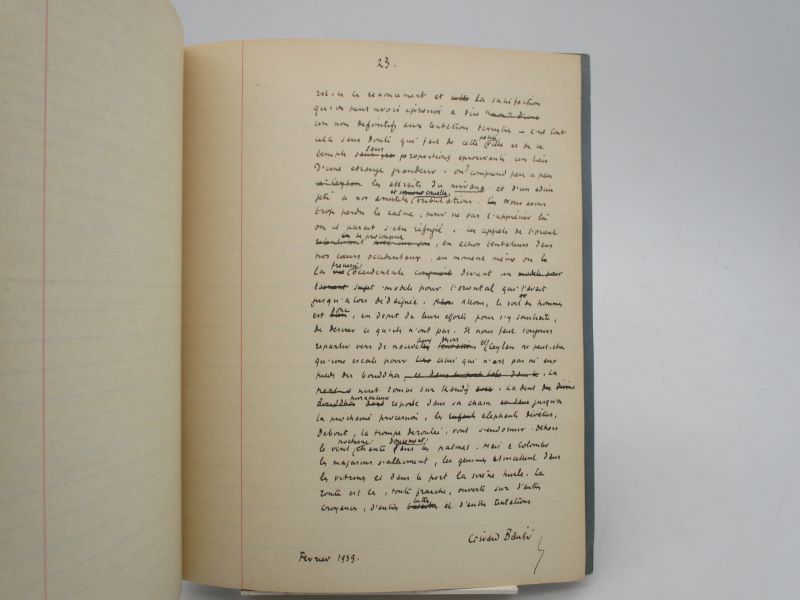 23.
est-ce ce renoncement et cette la satisfaction
qu'on peut avoir éprouvé à dire "non" d'une
un non définitif aux tentations terrestres — c'est tout
cela sans doute qui fait de cette petite ville et de ce
temple sans proportions éprouvantes un lieu
d'une étrange grandeur. On comprend peu à peu
à Ceylan les attraits du nirvana et d'un adieu
jeté à nos et souvent cruelles tribulations. Nous avons
trop perdu le calme, pour ne pas l'apprécier là
où il paraît s'être réfugié. Les appels de l'orient
se prolongent, en échos tentateurs dans
nos cœurs occidentaux, au moment même où la
La vie frénésie occidentale devient un modèle pour
modèle pour l'oriental qui l'avait
jusqu'alors dédaignée. Allons, le sort des hommes
est donc, en dépit de leurs efforts pour s'y soustraire,
de désirer ce qu'ils n'ont pas. Il nous faut toujours
repartir vers de nouvelles tentations et Ceylan ne peut-être
qu'une escale pour celui qui n'est pas né aux
pieds du Bouddha. La
nuit tombe sur Kandy. La dent
repose dans sa châsse jusqu'à
la prochaine procession, les éléphants dévêtus,
debout, la trompe déroulée, vont s'endormir. Dehors
le vent nocturne chante doucement dans les palmes. Mais à Colombo
les magasins s'allument, les gemmes étincellent dans
les vitrines et dans le port la sirène hurle. La
route est là, toute fraîche, ouverte sur d'autres
croyances, d'autres luttes et d'autres tentations
Gérard Bauër
Février 1939.